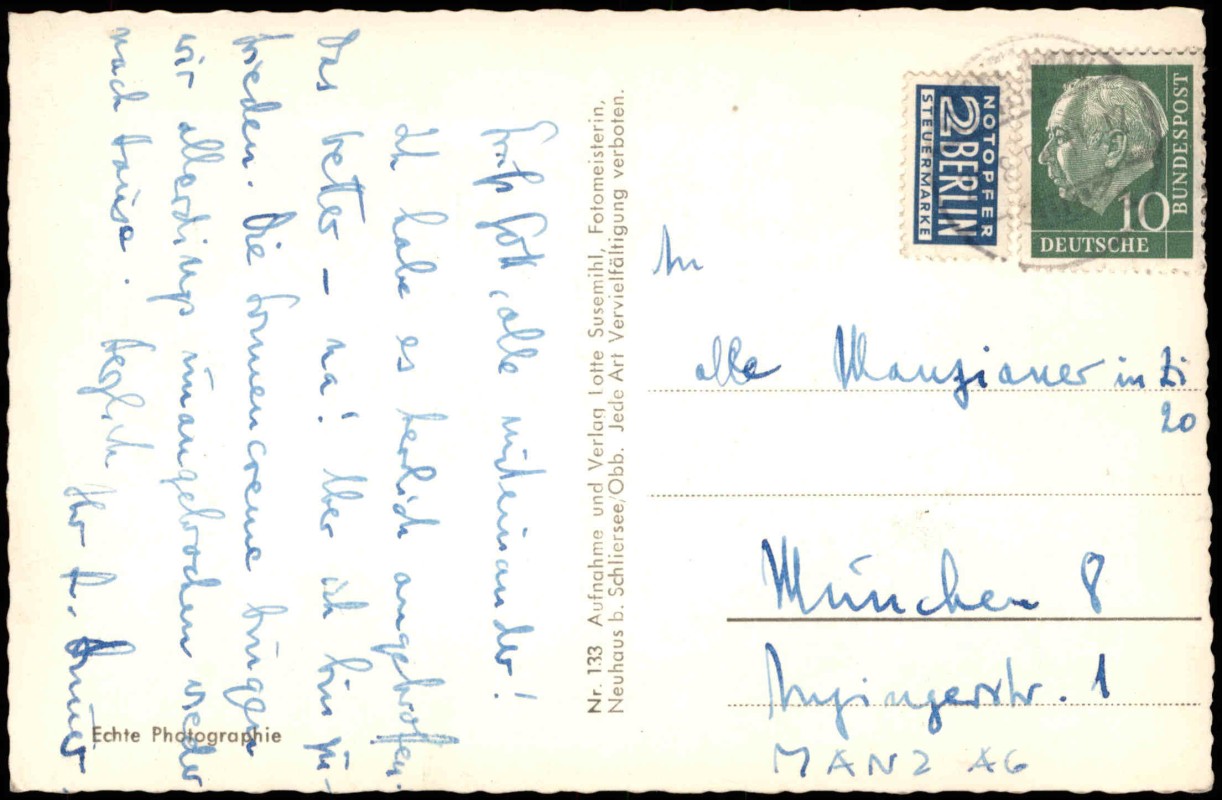 Grüß Gott, alle miteinander!
Ich habe es herlich angetroffen.
Das Wetter – na! Aber ich bin zu-
frieden. Die Sonnencreme bringen
wir allerdings unangebrochen wieder
nach Hause. Herzlich
Ihr
Echte Photographie
Nr. 133 Aufnahme und Verlag Lotte Susemihl, Fotomeisterin,
Neuhaus b. Schliersee/Obb. Jede Art Vervielfältigung verboten.
NOTOPFER
2 BERLIN
STEUERMARKE
BUNDESPOST
10
DEUTSCHE
An
alle Manzianer in Zi
20
München 8
Anzingerstr. 1
MANZ AG